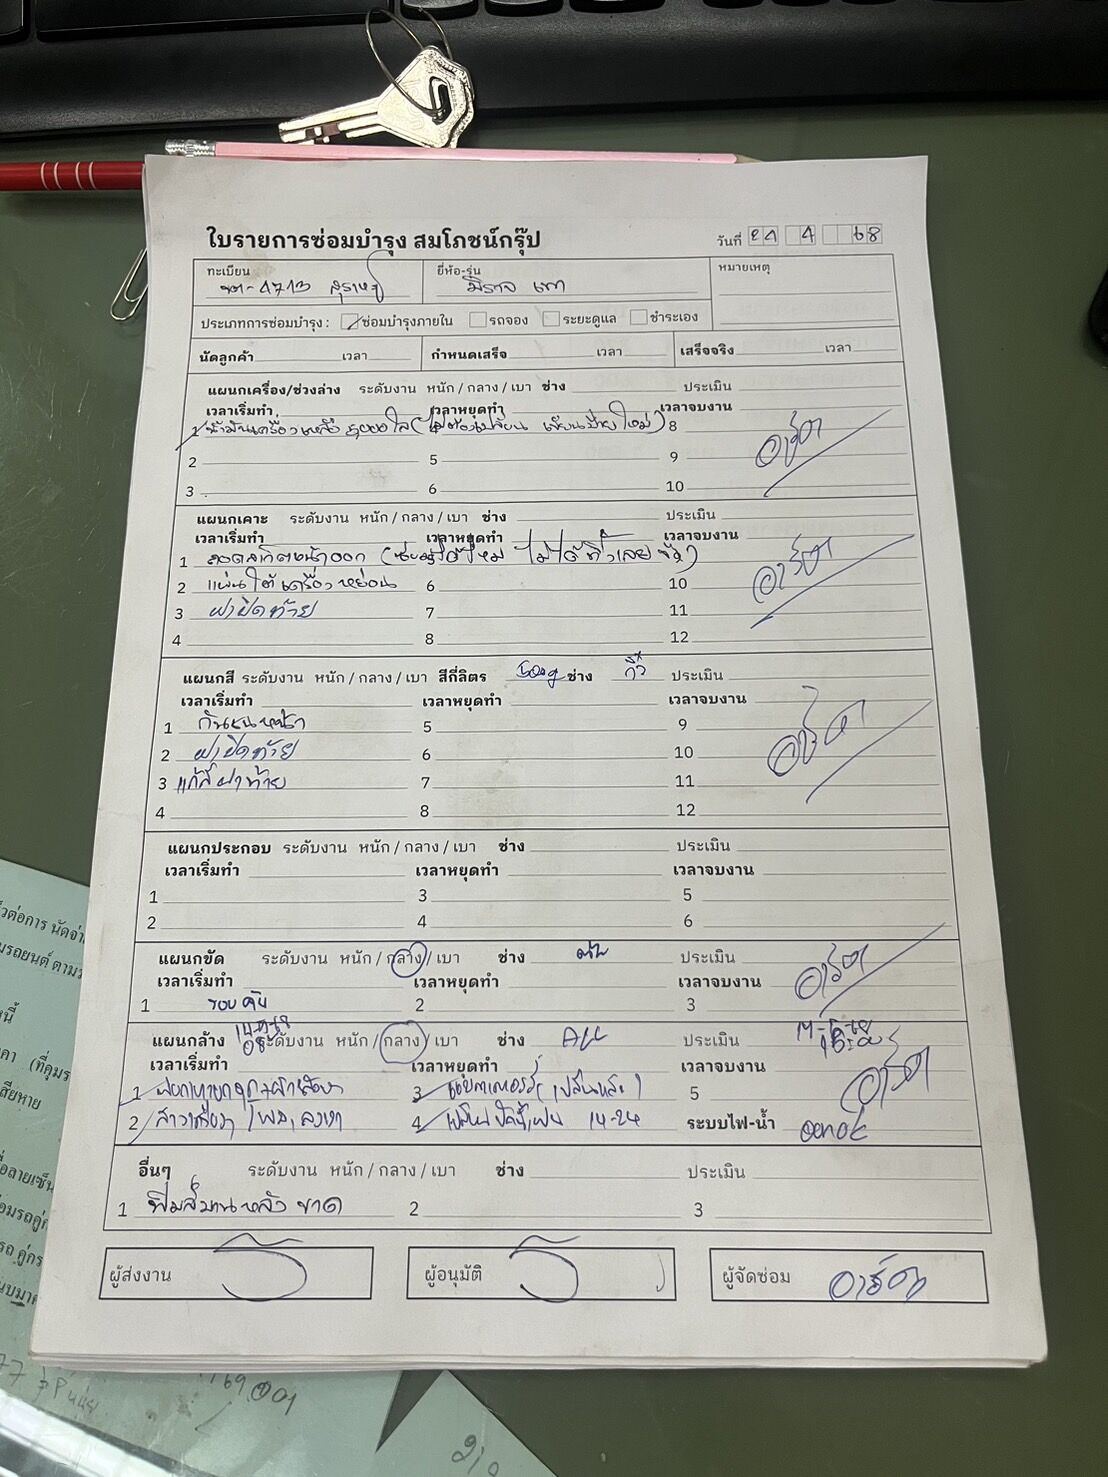 ใบรายการซ่อมบำรุง สมโภชน์กรุ๊ป
วันที่ 24 4 68
ทะเบียน ขต-4713 สุราษฎร์
ยี่ห้อ-รุ่น มิราจ เทา
หมายเหตุ
ประเภทการซ่อมบำรุง : ซ่อมบำรุงภายใน รถจอง ระยะดูแล ชำระเอง
นัดลูกค้า เวลา กำหนดเสร็จ เวลา เสร็จจริง เวลา
แผนกเครื่อง/ช่วงล่าง ระดับงาน หนัก / กลาง / เบา ช่าง ประเมิน
เวลาเริ่มทำ เวลาหยุดทำ เวลาจบงาน
1 น้ำมันเครื่องเหลือ 5,000 โล (ไม่ต้องเปลี่ยน เขียนป้ายใหม่) 8
2 5 9 อาร์ต
3 6 10
แผนกเคาะ ระดับงาน หนัก / กลาง / เบา ช่าง ประเมิน
เวลาเริ่มทำ เวลาหยุดทำ เวลาจบงาน
1 หน้าออก ไม่ได้
2 แผ่นใต้เครื่องหย่อน 6 10 อาร์ต
3 ฝาปิดท้าย 7 11
4 8 12
แผนกสี ระดับงาน หนัก / กลาง / เบา สีกี่ลิตร ช่าง กิ๊ว ประเมิน
เวลาเริ่มทำ เวลาหยุดทำ เวลาจบงาน
1 กันชนหน้า 5 9
2 ฝาปิดท้าย 6 10 อาร์ต
3 แก้สีฝาท้าย 7 11
4 8 12
แผนกประกอบ ระดับงาน หนัก / กลาง / เบา ช่าง ประเมิน
เวลาเริ่มทำ เวลาหยุดทำ เวลาจบงาน
1 3 5
2 4 6
แผนกขัด ระดับงาน หนัก / กลาง / เบา ช่าง ประเมิน
เวลาเริ่มทำ เวลาหยุดทำ เวลาจบงาน อาร์ต
1 รอบคัน 2 3
แผนกล้าง ระดับงาน หนัก / กลาง / เบา ช่าง All ประเมิน
เวลาเริ่มทำ เวลาหยุดทำ เวลาจบงาน
1 3 5 อาร์ต
2 4 14-24 ระบบไฟ-น้ำ
อื่นๆ ระดับงาน หนัก / กลาง / เบา ช่าง ประเมิน
1 ฟิมส์บานหลัง ขาด 2 3
ผู้ส่งงาน ผู้อนุมัติ ผู้จัดซ่อม อาร์ต